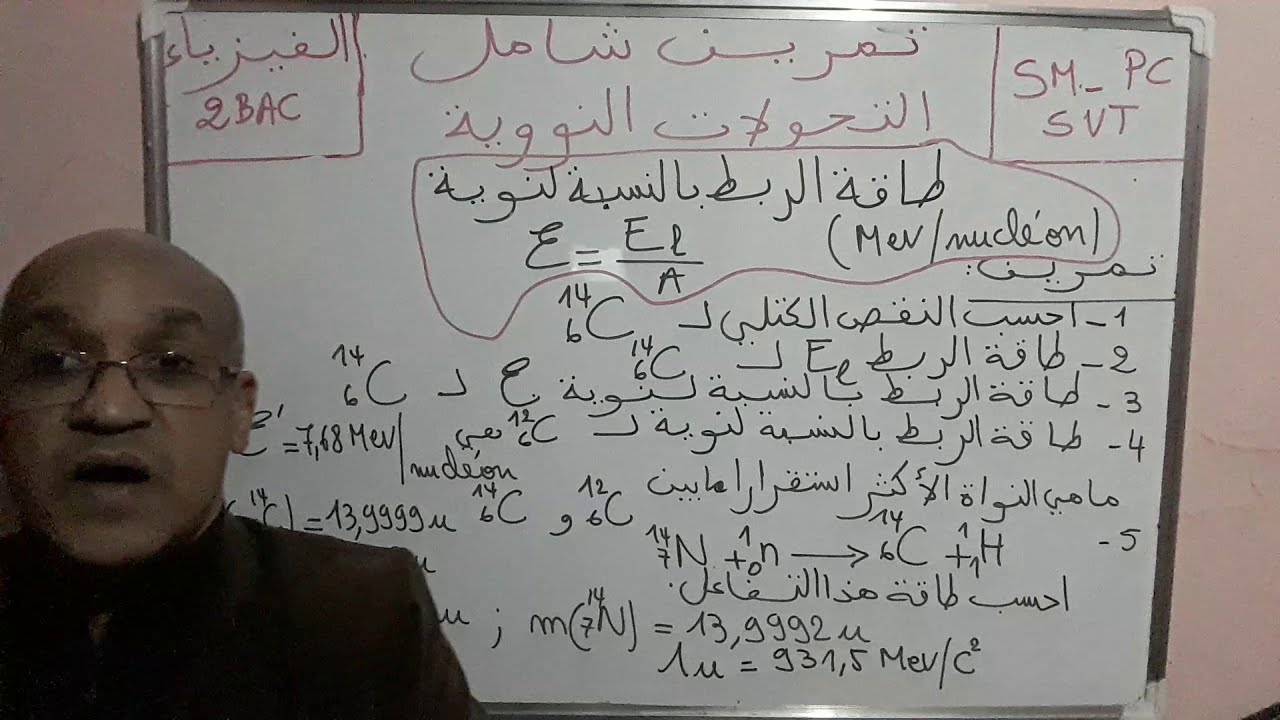 الفيزياء
2BAC
تمرين شامل
التحولات النووية
SM_PC
SVT
طاقة الربط بالنسبة لنوية
ℰ = Eℓ/A (Mev/nucléon)
تمرين:
1- احسب النقص الكتلي لـ ¹⁴₆C
2- طاقة الربط Eℓ لـ ¹⁴₆C
3- طاقة الربط بالنسبة لنوية ℰ لـ ¹⁴₆C
4- طاقة الربط بالنسبة لنوية لـ ¹²₆C هي ℰ' = 7,68 Mev/nucléon
ماهي النواة الأكثر استقرارا مابين ¹²₆C و ¹⁴₆C
C) = 13,9999u
5- ¹⁴₇N + ¹₀n → ¹⁴₆C + ¹₁H
احسب طاقة هذا التفاعل.
u ; m(¹⁴₇N) = 13,9992u
1u = 931,5 MeV/C²